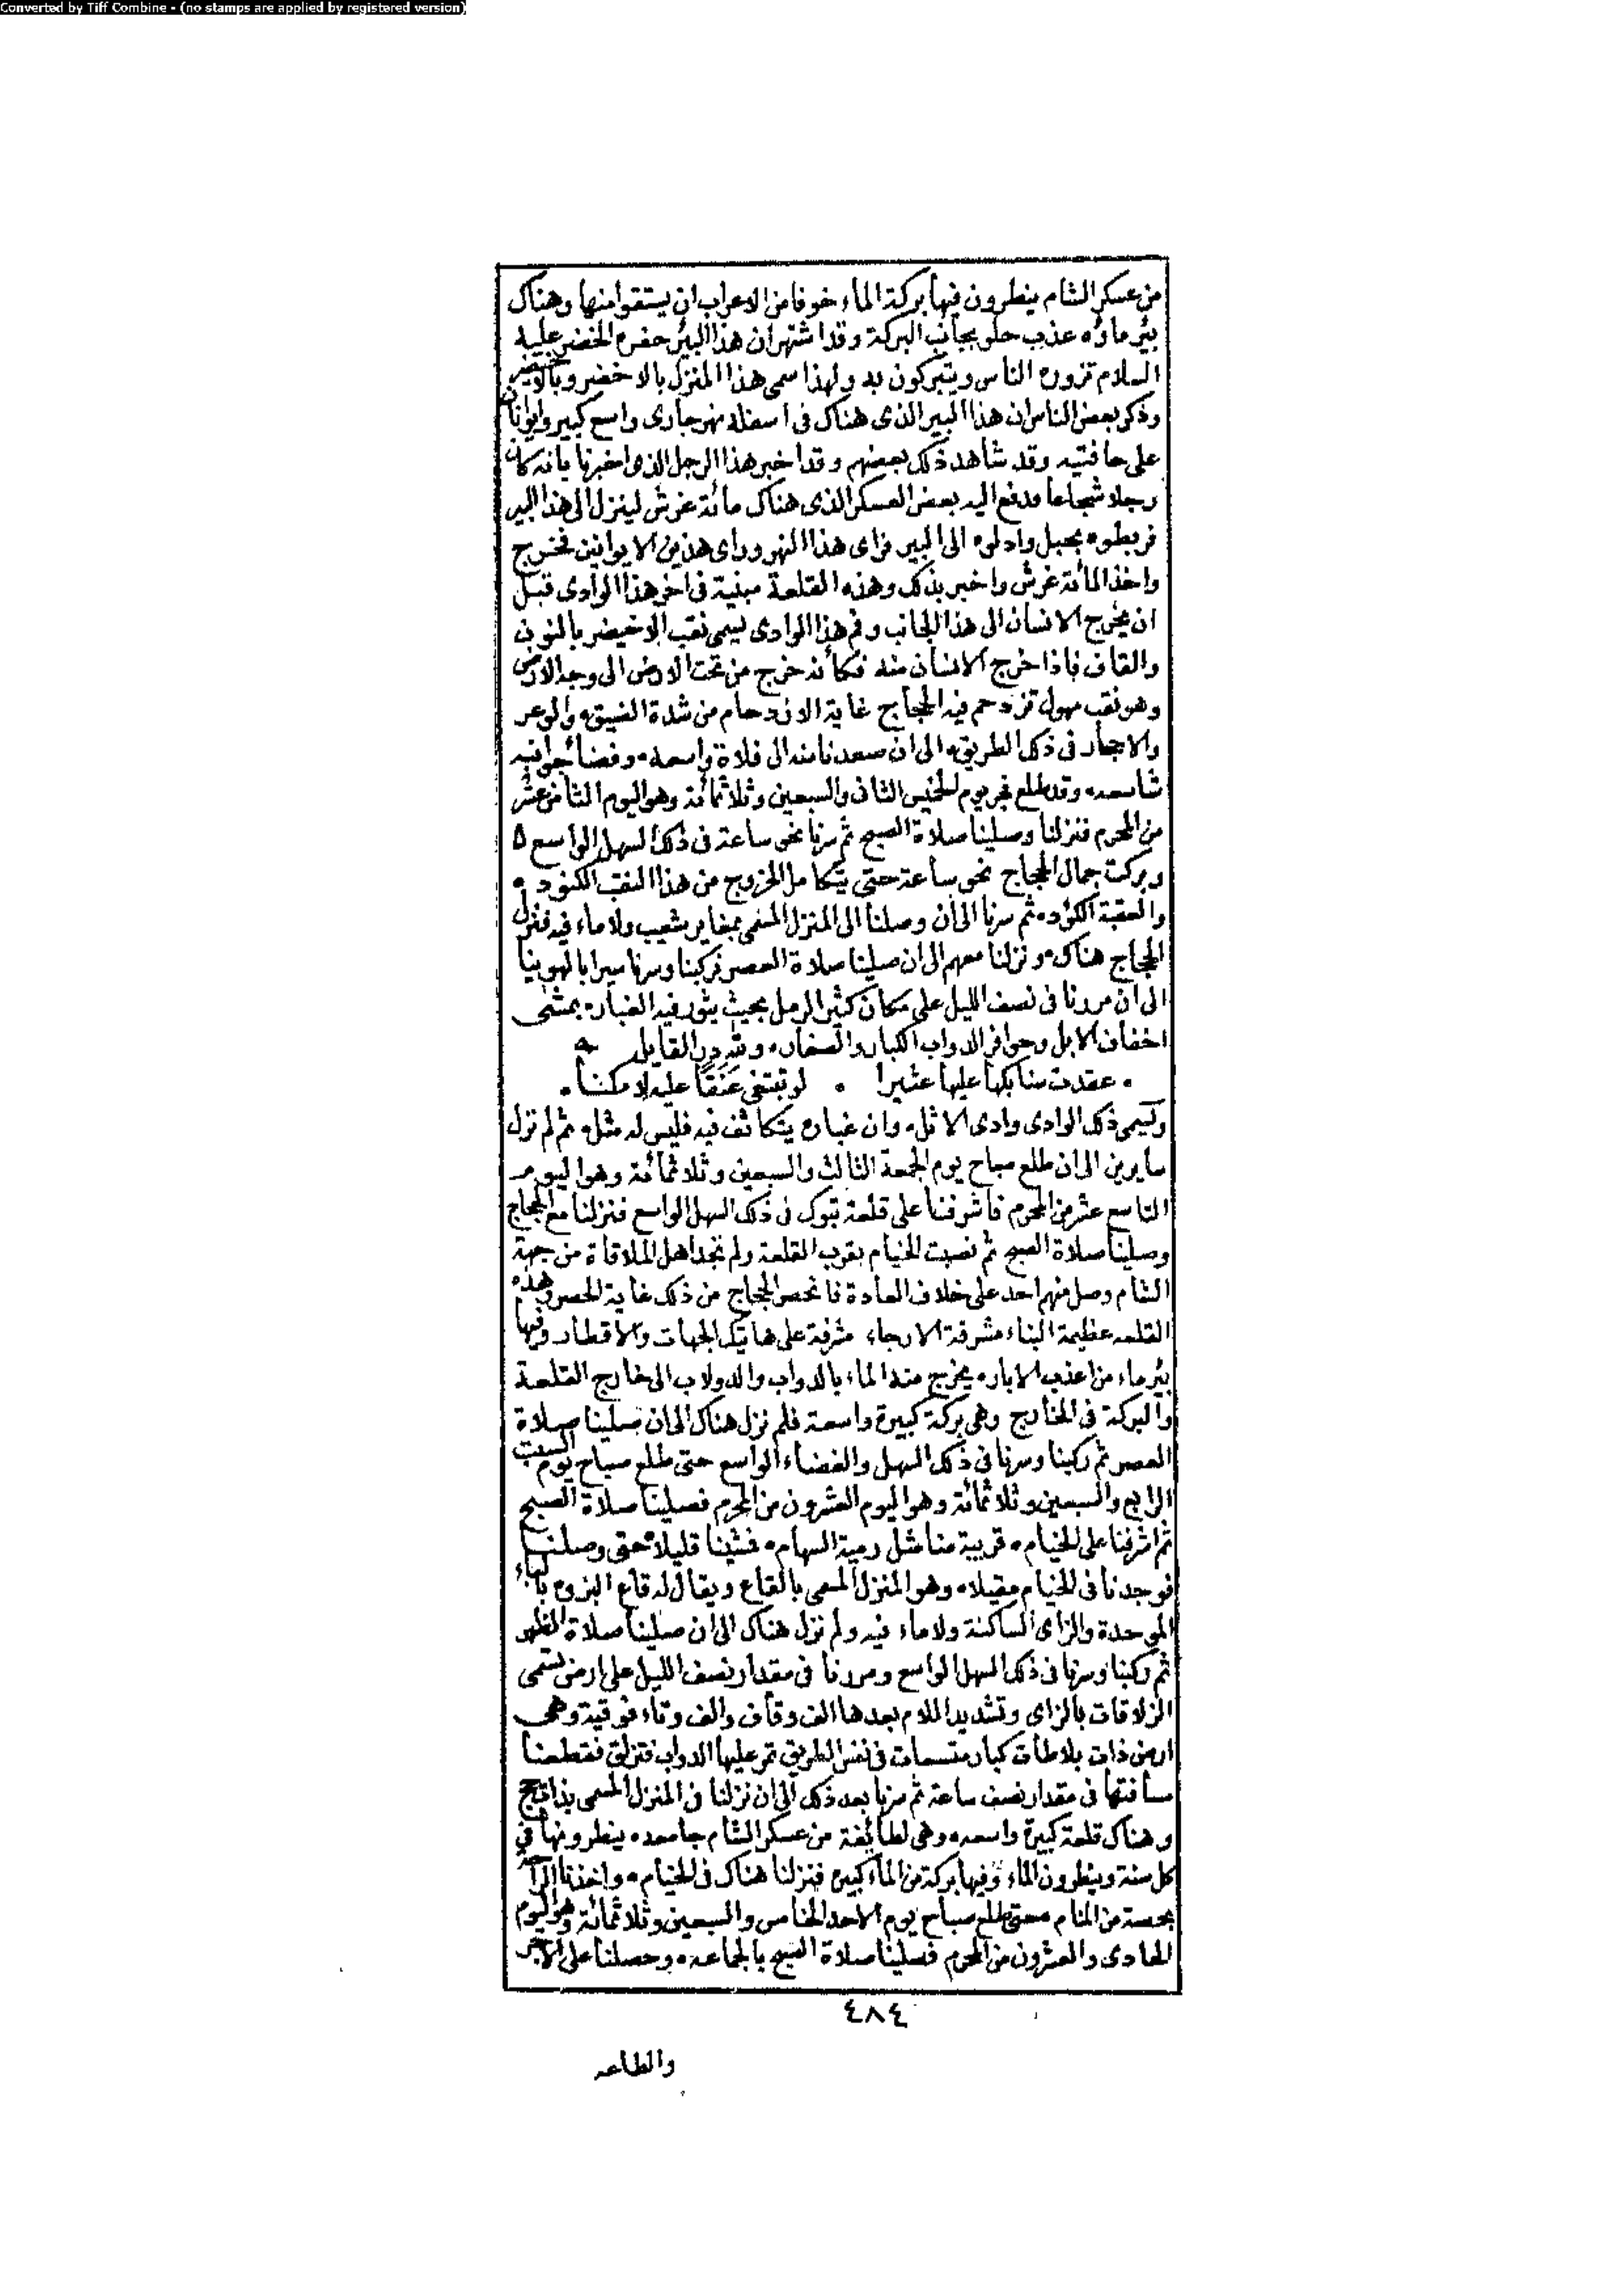 Converted by Tiff Combine - (no stamps are applied by registered version)
من عسكر الشام ينطرون فيها بركة الماء خوفا من الاعراب ان يستقوا منها وهناك
بئر ماؤه عذب حلو بجانب البركة وقد اشتهران هذا البئر حفره الخضر عليه
السلام تزوره الناس ويتبركون به ولهذا سمى هذا المنزل بالاخضر وبالاخيضر
وذكر بعض الناس ان هذا البير الذى هناك فى اسفله نهر جارى واسع كبير وايوانان
على حافتيه وقد شاهد ذلك بعضهم وقد اخبر هذا الرجل الذى اخبرنا بانه كان
رجلا شجاعا ودفع اليه بعض العسكر الذى هناك مائة غرش لينزل الى هذا البير
فربطوه بحبل وادلوه الى البير فراى هذا النهر وراى هذين الايوانين فخرج
واخذ المائة غرش واخبر بذلك وهذه القلعة مبنية فى اخر هذا الوادى قبل
ان يخرج الانسان الى هذا الجانب وفم هذا الوادى يسمى نقب الاخيضر بالنون
والقاف فاذا خرج الانسان منه فكأنه خرج من تحت الارض الى وجه الارض
وهو نقب مهول تزدحم فيه الحجاج غاية الازدحام من شدة الضيق، والوعر
والاحجار فى ذلك الطريق، الى ان صعدنا منه الى فلاة واسعه، وفضا جوانبه
شاسعه، وقد طلع فجر يوم الخميس الثانى والسبعين وثلاثمائة وهو اليوم الثامن عشر
من المحرم فنزلنا وصلينا صلاة الصبح ثم سرنا نحو ساعة فى ذلك السهل الواسع ٥
وبركت جمال الحجاج نحو ساعة حتى يتكامل الخروج من هذا النقب الكنود،
والعقبة الكؤد، ثم سرنا الى ان وصلنا الى المنزل المسمى بمغاير شعيب ولا ماء فيه فنزل
الحجاج هناك، ونزلنا معهم الى ان صلينا صلاة العصر فركبنا وسرنا سيرا بالهوينا
الى ان مررنا فى نصف الليل على مكان كثير الرمل بحيث يثور فيه الغبار، بمشى
اخفاف الابل وحوافر الدواب الكبار والصغار، ولله در القايل
. عقدت سنابكها عليها عثيرا . لو تبتغى عنقا عليه لامكنا .
ويسمى ذلك الوادى وادى الاثل، وان غباره يتكاثف فيه فليس له مثل، ثم لم نزل
سايرين الى ان طلع صباح يوم الجمعة الثالث والسبعين وثلاثمائة وهو اليوم
التاسع عشر من المحرم فاشرفنا على قلعة تبوك فى ذلك السهل الواسع فنزلنا مع الحجاج
وصلينا صلاة الصبح ثم نصبت الخيام بقرب القلعة ولم نجد اهل الملاقاة من جهة
الشام وصل منهم احد على خلاف العادة فانحصر الحجاج من ذلك غاية الحصر وهذه
القلعه عظيمة البناء مشرفة الارجاء، مشرفة على هاتيك الجهات والاقطار، وفيها
بئر ماء من اعذب الابار، يخرج منه الماء بالدواب والدولاب الى خارج القلعة
والبركة فى الخارج وهى بركة كبيرة واسعة فلم نزل هناك الى ان صلينا صلاة
العصر ثم ركبنا وسرنا فى ذلك السهل والفضاء الواسع حتى طلع صباح يوم السبت
الرابع والسبعين وثلاثمائة وهو اليوم العشرون من المحرم فصلينا صلاة الصبح
ثم اشرفنا على الخيام، قريبة منا مثل رمية السهام، فمشينا قليلا، حتى وصلنا
فوجدنا فى الخيام مقيلا، وهو المنزل المسمى بالقاع ويقال له قاع البزوه بالباء
الموحدة والزاى الساكنة ولا ماء فيه ولم نزل هناك الى ان صلينا صلاة الظهر
ثم ركبنا وسرنا فى ذلك السهل الواسع ومررنا فى مقدار نصف الليل على ارض تسمى
الزلاقات بالزاى وتشديد اللام بعدها الف وقاف والف وتاء فوقية وهى
ارض ذات بلاطات كبار متسعات فى نفس الطريق تمر عليها الدواب فتزلق فقطعنا
مسافتها فى مقدار نصف ساعة ثم سرنا بعد ذلك الى ان نزلنا فى المنزل المسمى بذات حج
وهناك قلعة كبيرة واسعه، وهى لطائفة من عسكر الشام جامعه، ينطرونها فى
كل سنة وينطرون الماء وفيها بركة من الماء كبيره فنزلنا هناك فى الخيام، واخذنا الراحة
بحصة من المنام، حتى طلع صباح يوم الاحد الخامس والسبعين وثلاثمائة وهو اليوم
الحادى والعشرون من المحرم فصلينا صلاة الصبح بالجماعه، وحصلنا على الاجر
٤٨٤
والطاعه